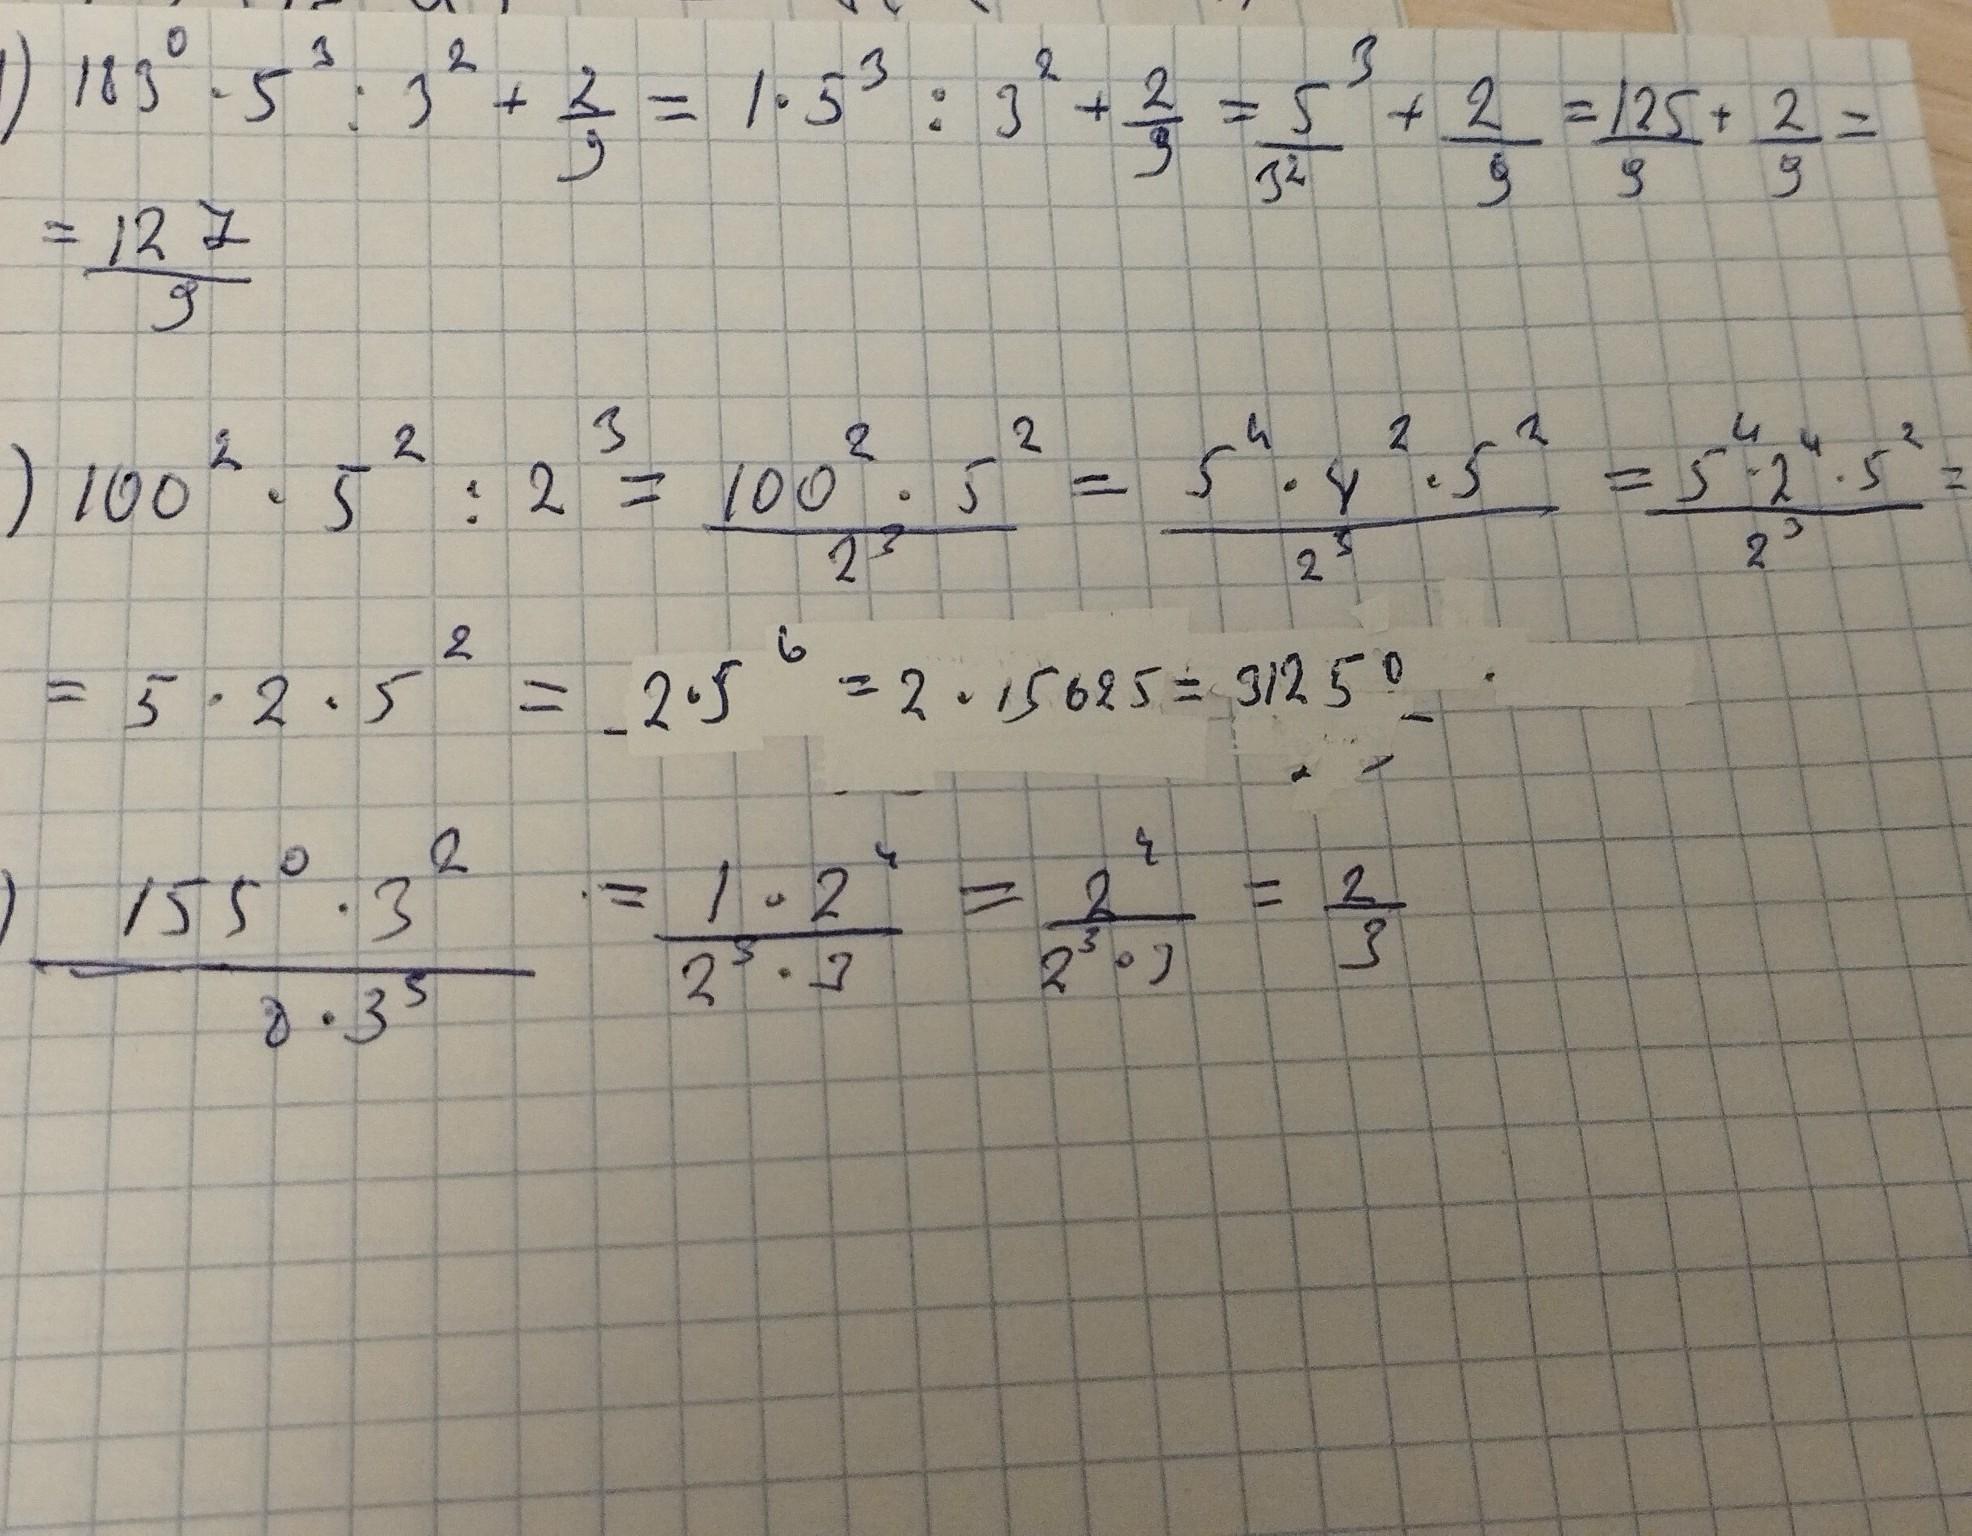 ) 183⁰ · 5³ : 3² + 2/9 = 1 · 5³ : 3² + 2/9 = 5³/3² + 2/9 = 125/9 + 2/9 =
= 127/9
) 100² · 5² : 2³ = 100² · 5²/2³ = 5⁴ · 4² · 5²/2³ = 5⁴ · 2⁴ · 5²/2³ =
= 5 · 2 · 5² = 2 · 5⁶ = 2 · 15625 = 31250
) 155⁰ · 3²/8 · 3⁵ = 1 · 2⁴/2³ · 3 = 2⁴/2³ · 3 = 2/3